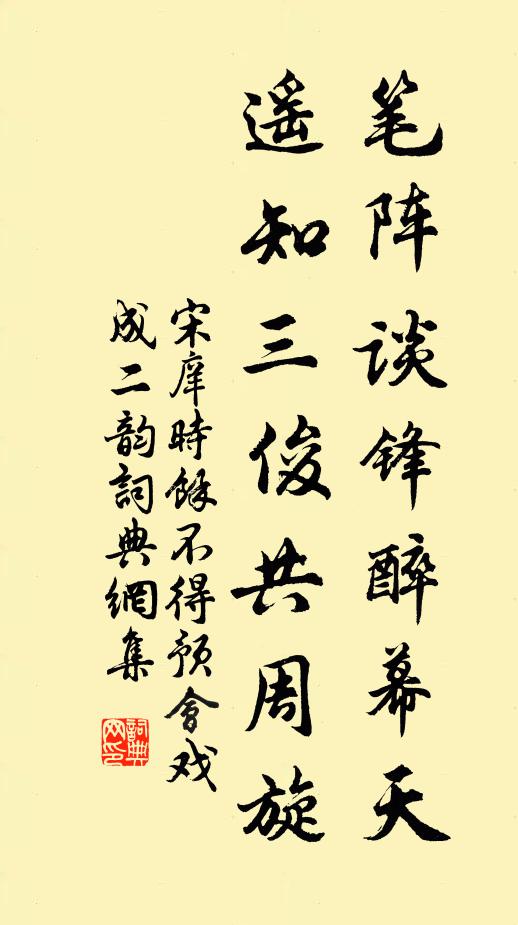 笔阵谈锋醉幕天
遥知三俊共周旋
宋庠時餘不得预會戏
成二韵詞典網集
詞典網印